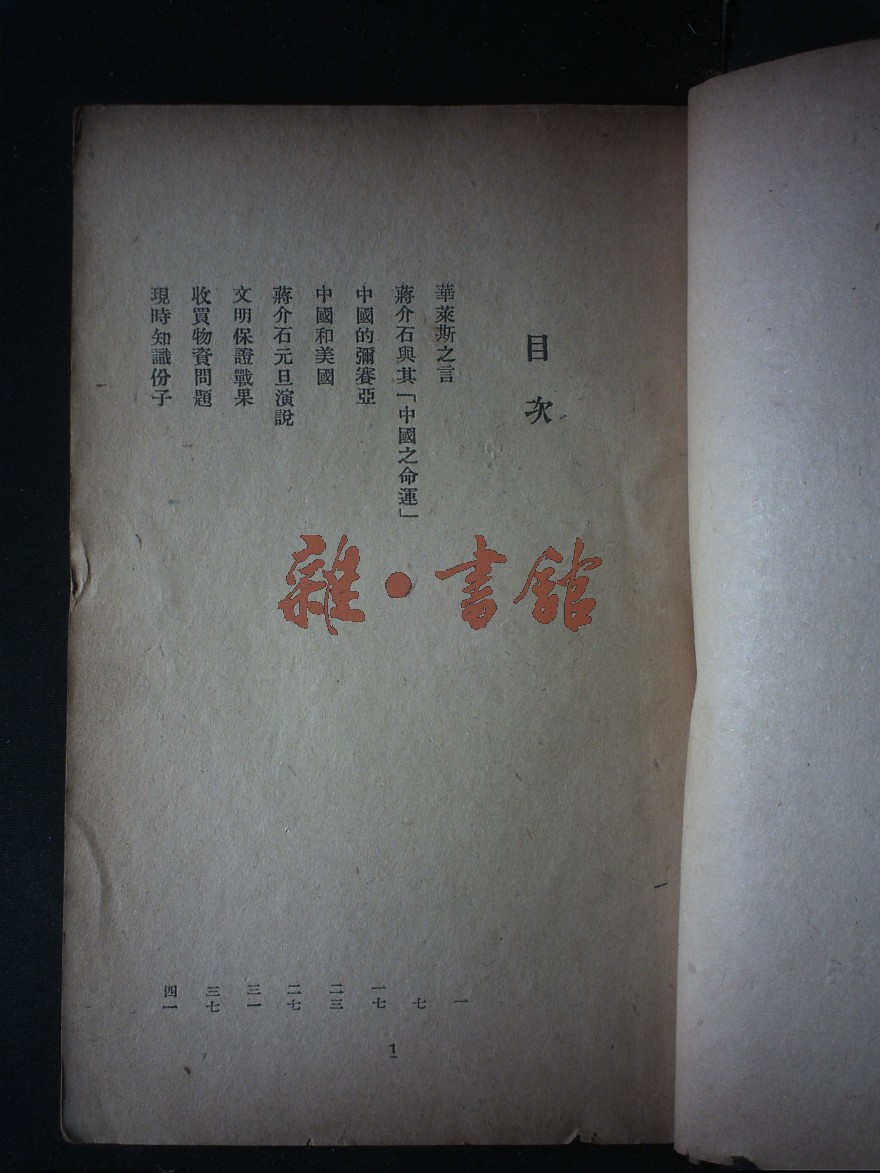 目次
華萊斯之言 一
蔣介石與其「中國之命運」 七
中國的彌賽亞 一七
中國和美國 二三
蔣介石元旦演說 二七
文明保證戰果 三一
收買物資問題 三七
現時知識份子 四一
1
雜·書館